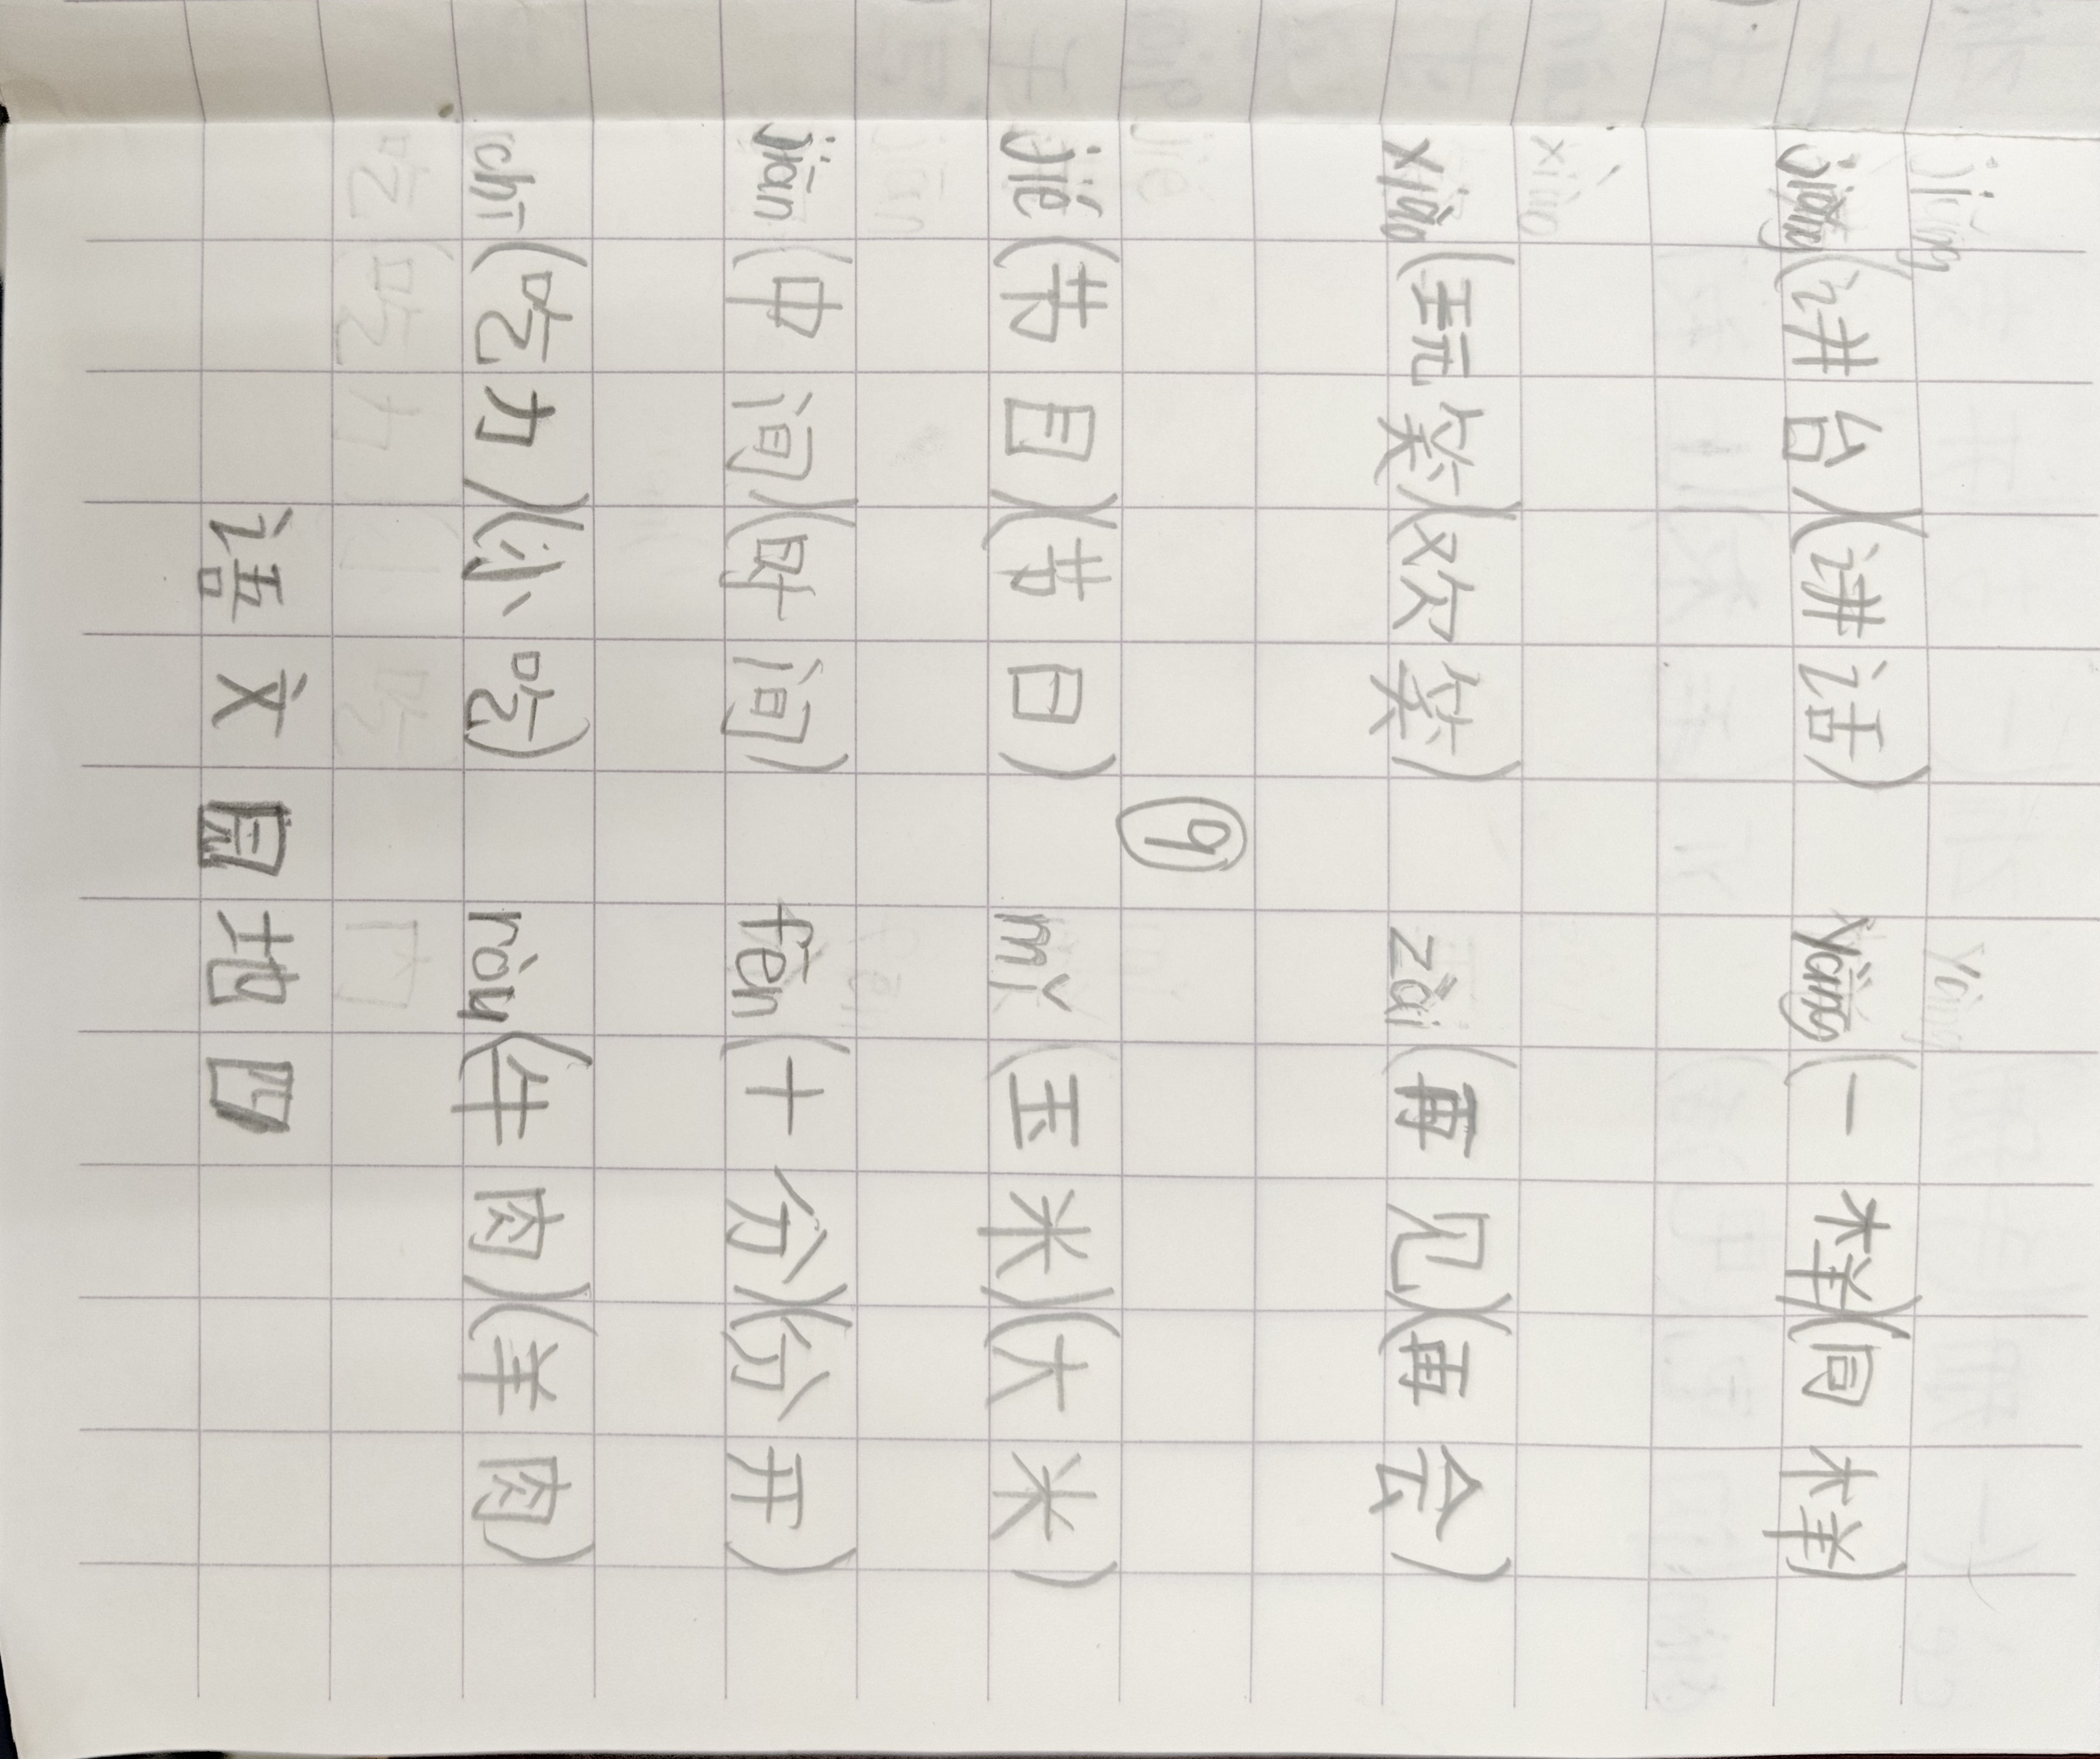 jiǎng(讲台)(讲话) yàng(一样)(同样)
xiào(玩笑)(欢笑) zài(再见)(再会)
⑨
jié(节目)(节日) mǐ(玉米)(大米)
jiān(中间)(时间) fēn(十分)(分开)
chī(吃力)(小吃) ròu(牛肉)(羊肉)
语文园地四